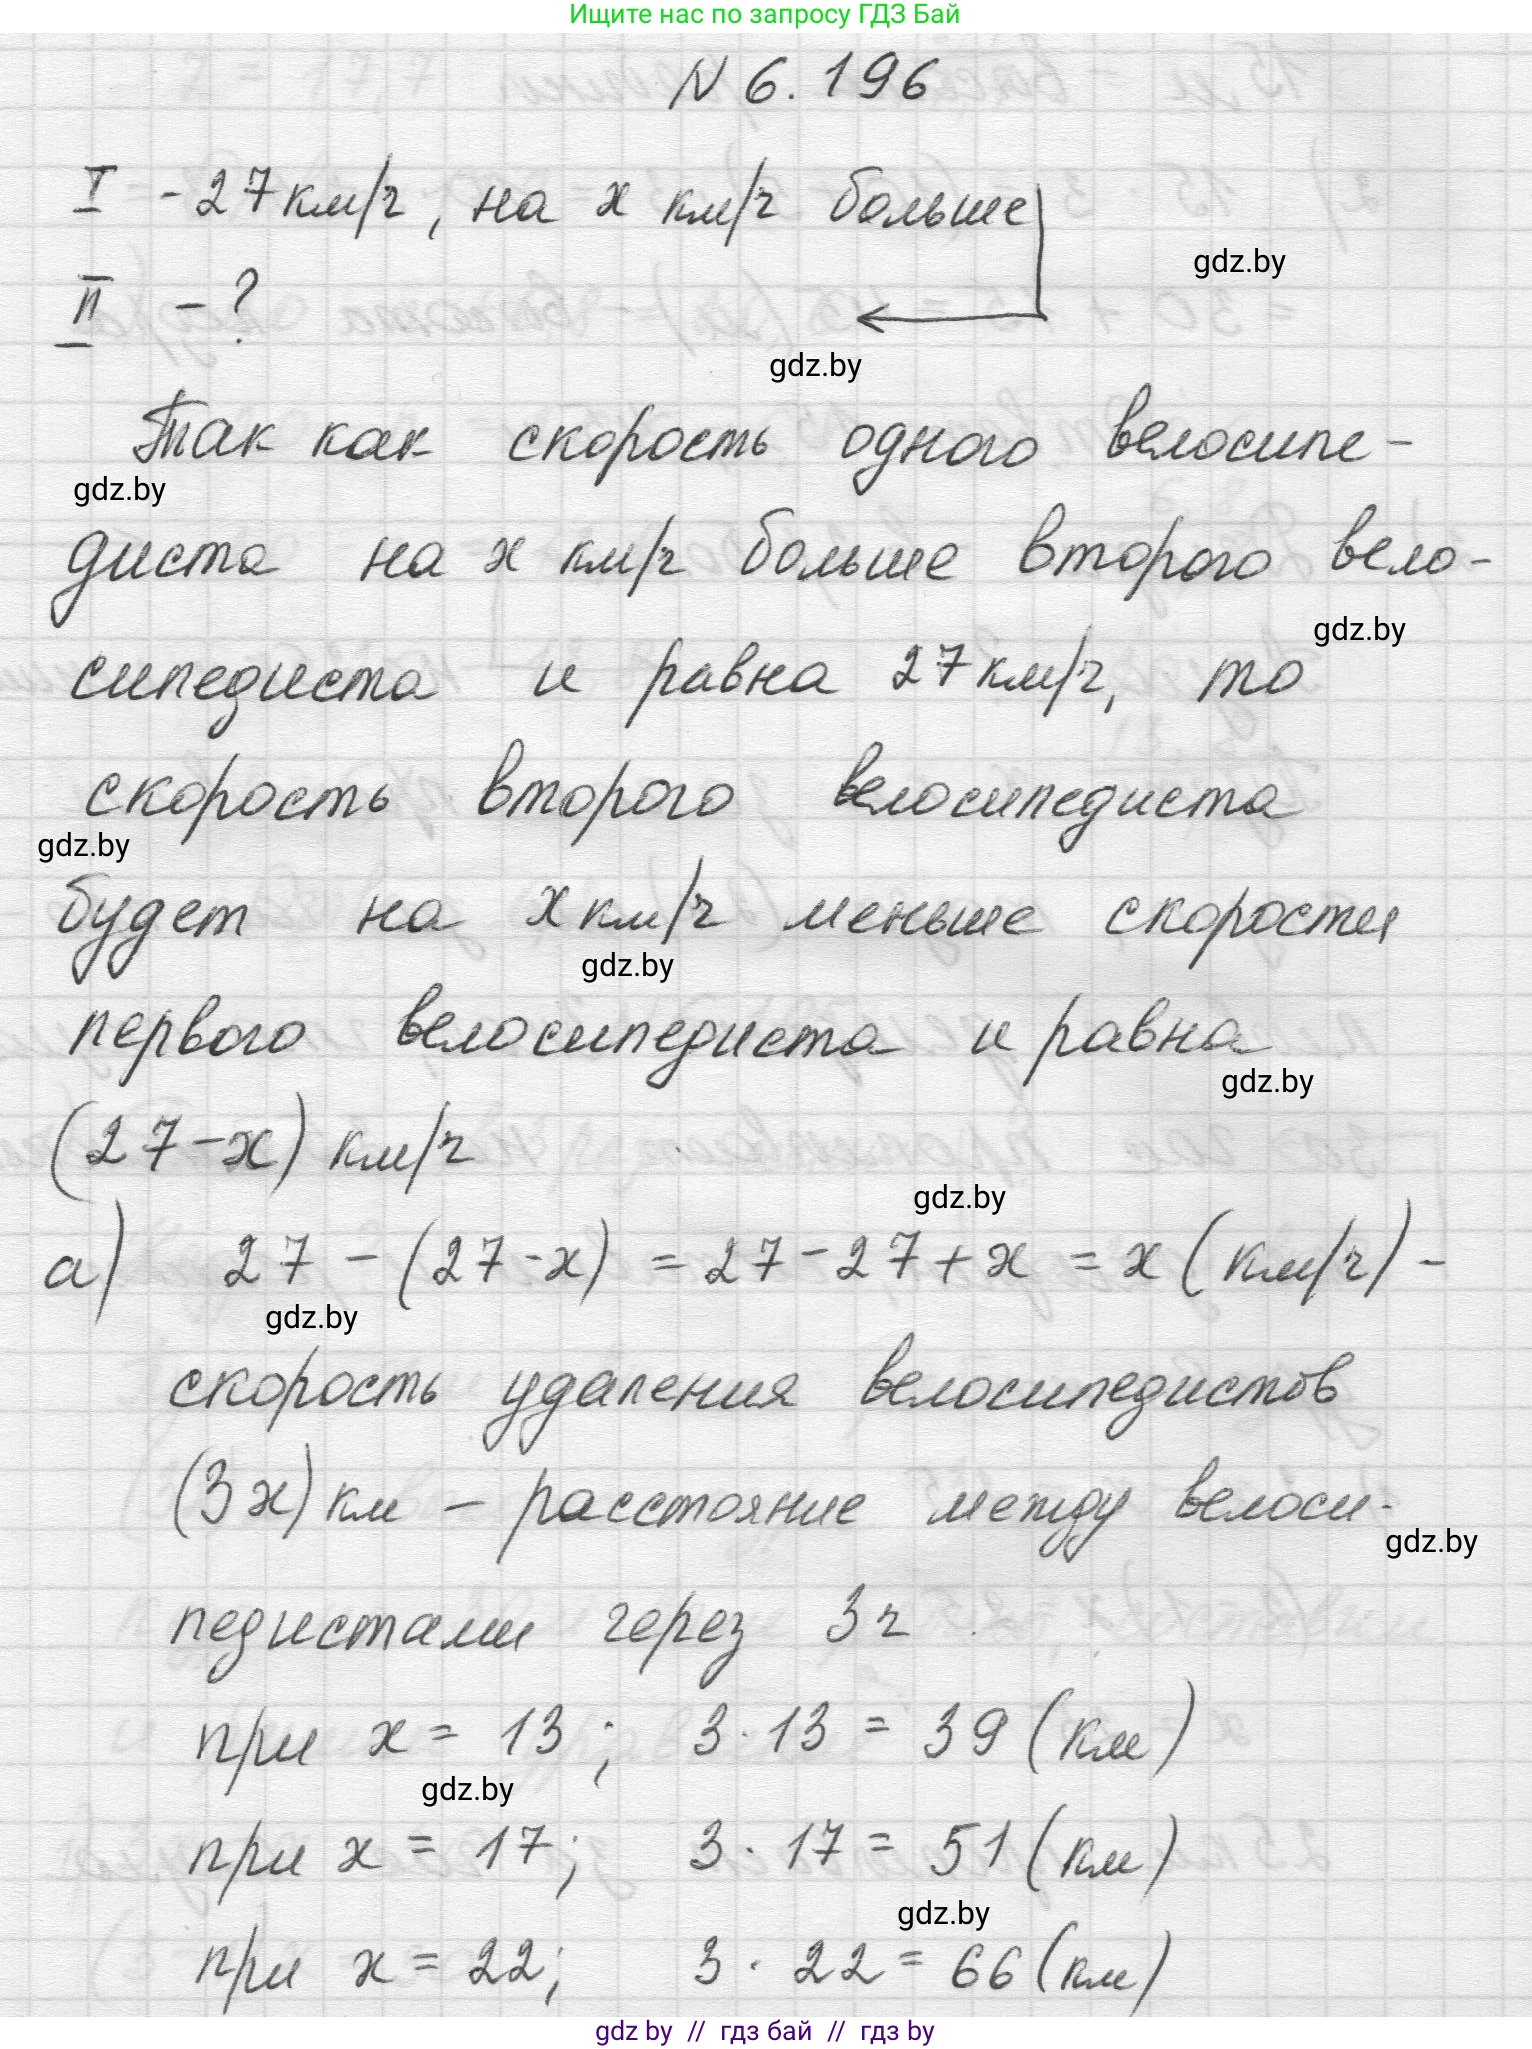 Ищите нас по запросу ГДЗ Бай
N 6.196
I - 27 км/ч, на x км/ч больше
gdz.by
II - ?
gdz.by
Так как скорость одного велосипе-
gdz.by
диста на x км/ч больше второго вело-
gdz.by
сипедиста и равна 27 км/ч, то
скорость второго велосипедиста
gdz.by
будет на x км/ч меньше скорости
gdz.by
первого велосипедиста и равна
gdz.by
(27-x) км/ч
gdz.by
а) 27 - (27-x) = 27-27+x = x (км/ч) -
gdz.by
скорость удаления велосипедистов
(3x) км - расстояние между велоси-
gdz.by
педистами через 3ч
при x = 13; 3·13 = 39 (км)
gdz.by
при x = 17; 3·17 = 51 (км)
gdz.by
при x = 22; 3·22 = 66 (км)
gdz by // гдз бай // гдз by